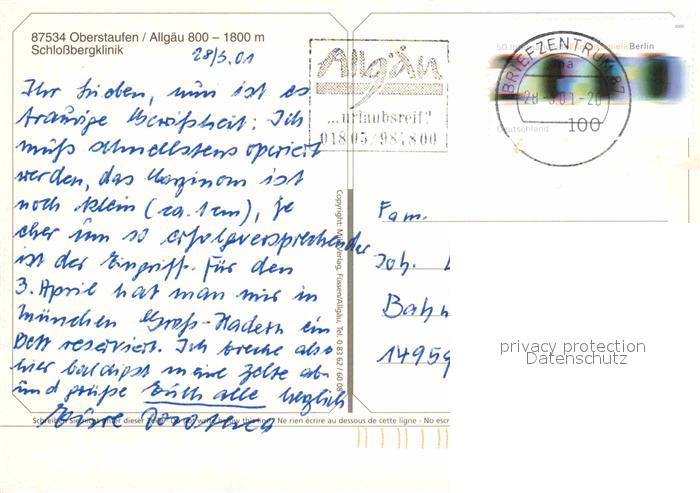 87534 Oberstaufen / Allgäu 800 – 1800 m
Schloßbergklinik
28/3.01
Ihr Lieben, nun ist es
traurige Gewißheit: Ich
muß schnellstens operiert
werden, das Karzinom ist
noch klein (ca. 1cm), je
eher um so erfolgversprechender
ist der Eingriff. Für den
3. April hat man mir in
München Groß-Hadern ein
Bett reserviert. Ich breche also
hier baldigst meine Zelte ab
und grüße Euch alle herzlich
Eure
Schreiben Sie nicht unter dieser Do not write below this line • Ne rien écrire au dessous de cette ligne • No escr
Copyright: Verlag, Füssen/Allgäu, Tel. 0 83 62 / 60 08
Allgäu
...urlaubsreif?
01805/987800
BRIEFZENTRUM 87
28.-3.01-20
50 Internationale Filmfestspiele Berlin
Deutschland
100
Fam.
Joh.
Bahn
14959
privacy protection
Datenschutz